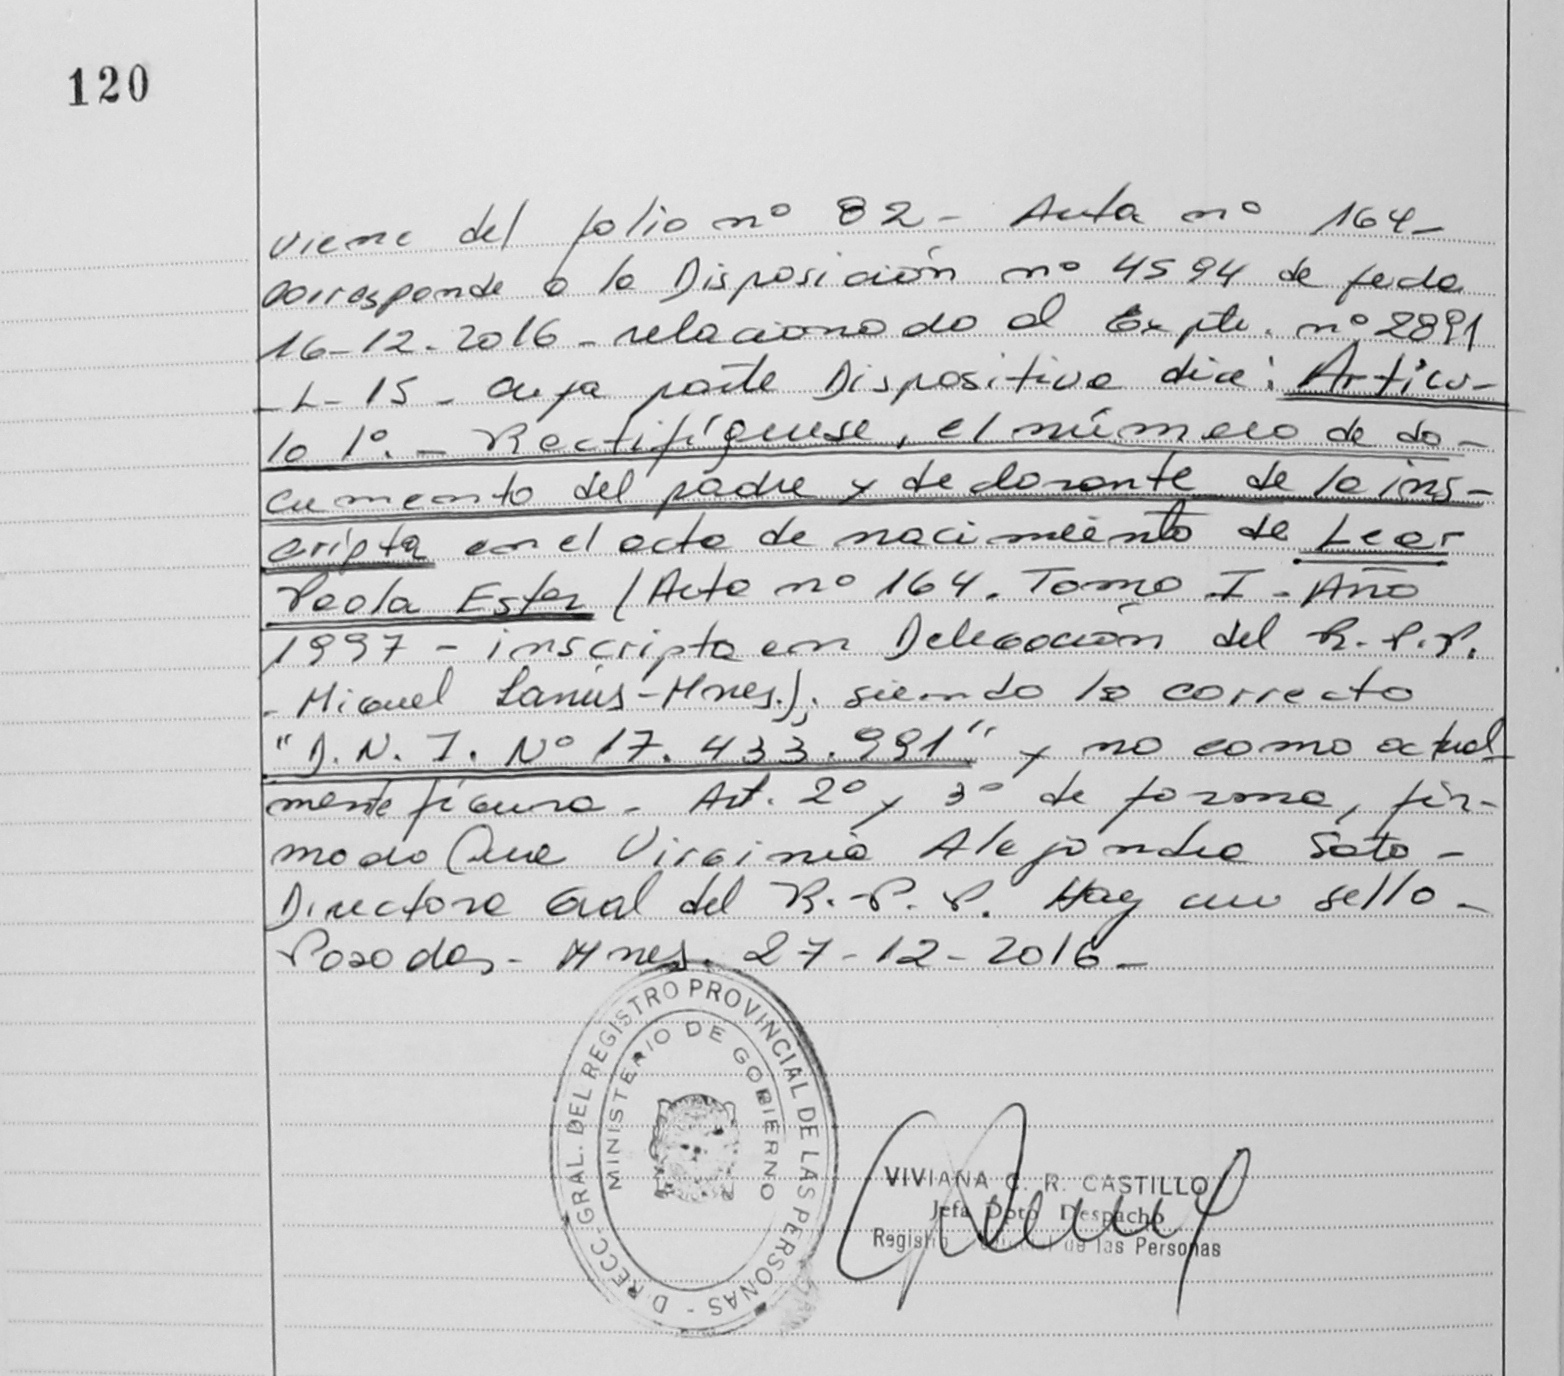 120
viene del folio nº 82 - Acta nº 164 -
corresponde a la Disposición nº 4594 de fecha
16-12-2016 - relacionado al Expte. nº 2891
- L - 15 - cuya parte Dispositiva dice: Artícu-
lo 1º. - Rectifíquese, el número de do-
cumento del padre y declarante de la ins-
cripta en el acta de nacimiento de Lear
Paola Ester (Acta nº 164. Tomo I - Año
1997 - inscripta en Delegación del R.P.P.
- Miguel Lanús - Mnes.); siendo lo correcto
"D.N.I. Nº 17.433.991" y no como actual
mente figura - Art. 2º y 3º de forma, fir-
mado Virginia Alejandra Soto -
Directora Gral del R.P.P. Hay un sello -
Posadas - Mnes. 27-12-2016 -
DIRECC. GRAL. DEL REGISTRO PROVINCIAL DE LAS PERSONAS -
MINISTERIO DE GOBIERNO
VIVIANA C. R. CASTILLO
Jefa Dpto Despacho
Registro de las Personas